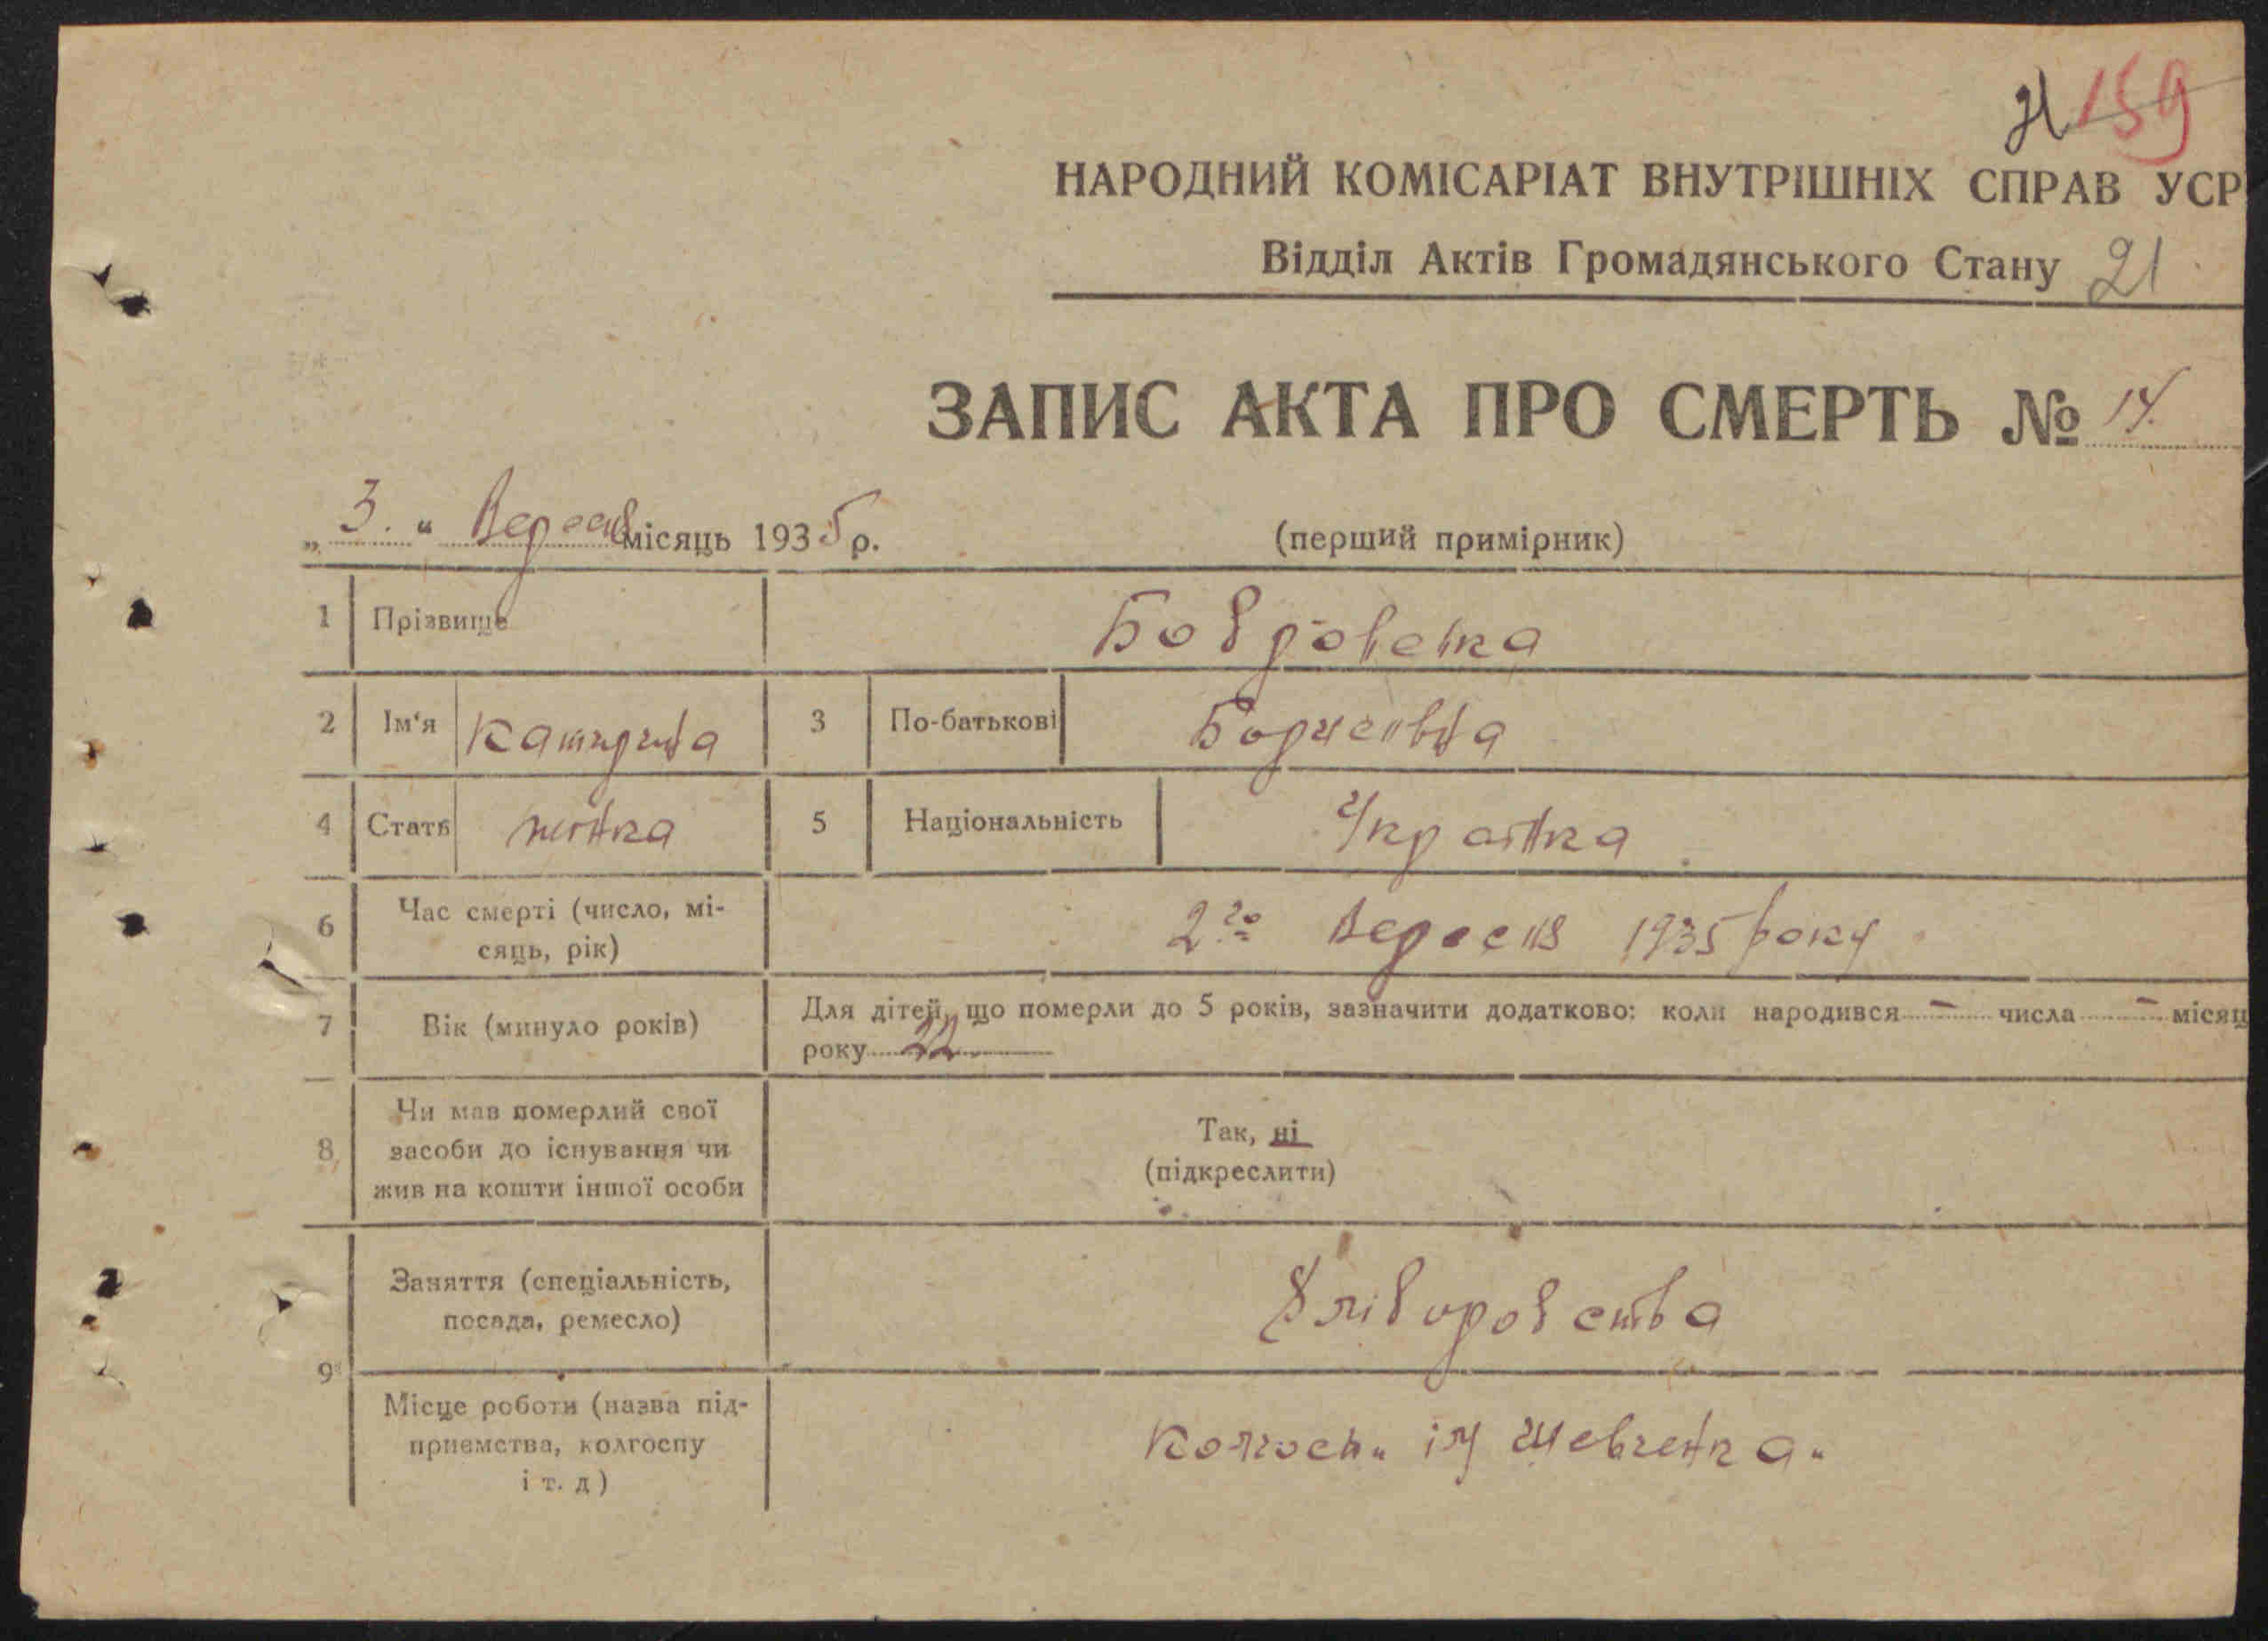 21 159
НАРОДНИЙ КОМІСАРІАТ ВНУТРІШНІХ СПРАВ УСР
Відділ Актів Громадянського Стану 21
ЗАПИС АКТА ПРО СМЕРТЬ № 14.
„3.“ місяць 1935 р. (перший примірник)
1 Прізвище
2 Ім‘я Катирина 3 По-батькові Борисівна
4 Стать жінка 5 Національність Українка
6 Час смерті (число, мі-
сяць, рік) 2го 1935 року
7 Вік (минуло років) Для дітей, що померли до 5 років, зазначити додатково: коли народився – числа – місяц
року 22
8 Чи мав померлий свої
засоби до існування чи
жив на кошти іншої особи
Так, ні
(підкреслити)
9 Заняття (спеціальність,
посада, ремесло)
Хліборобства
Місце роботи (назва під-
приємства, колгоспу
і т. д)
Колгосп „ім Шевченка„